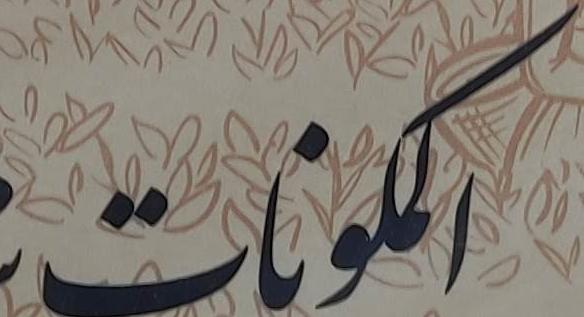 المكونات